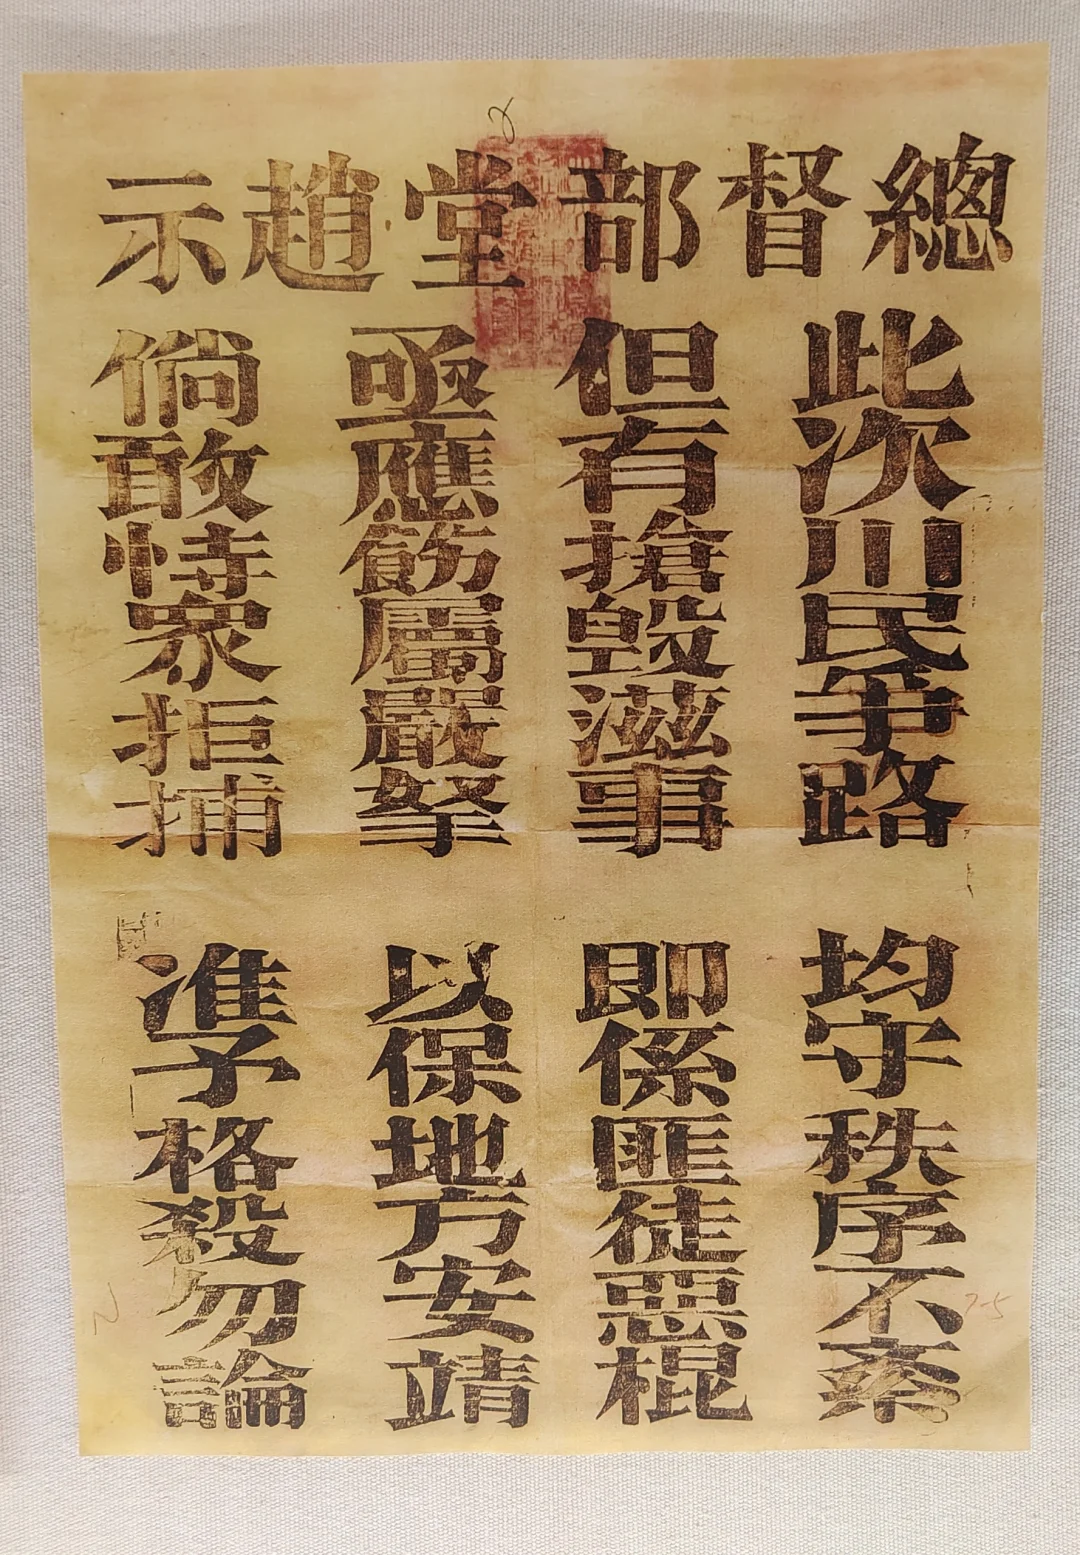 總督部堂趙示
此次川民爭路
均守秩序不紊
但有搶毀滋事
即係匪徒惡棍
亟應飭屬嚴拏
以保地方安靖
倘敢恃眾拒捕
准予格殺勿論